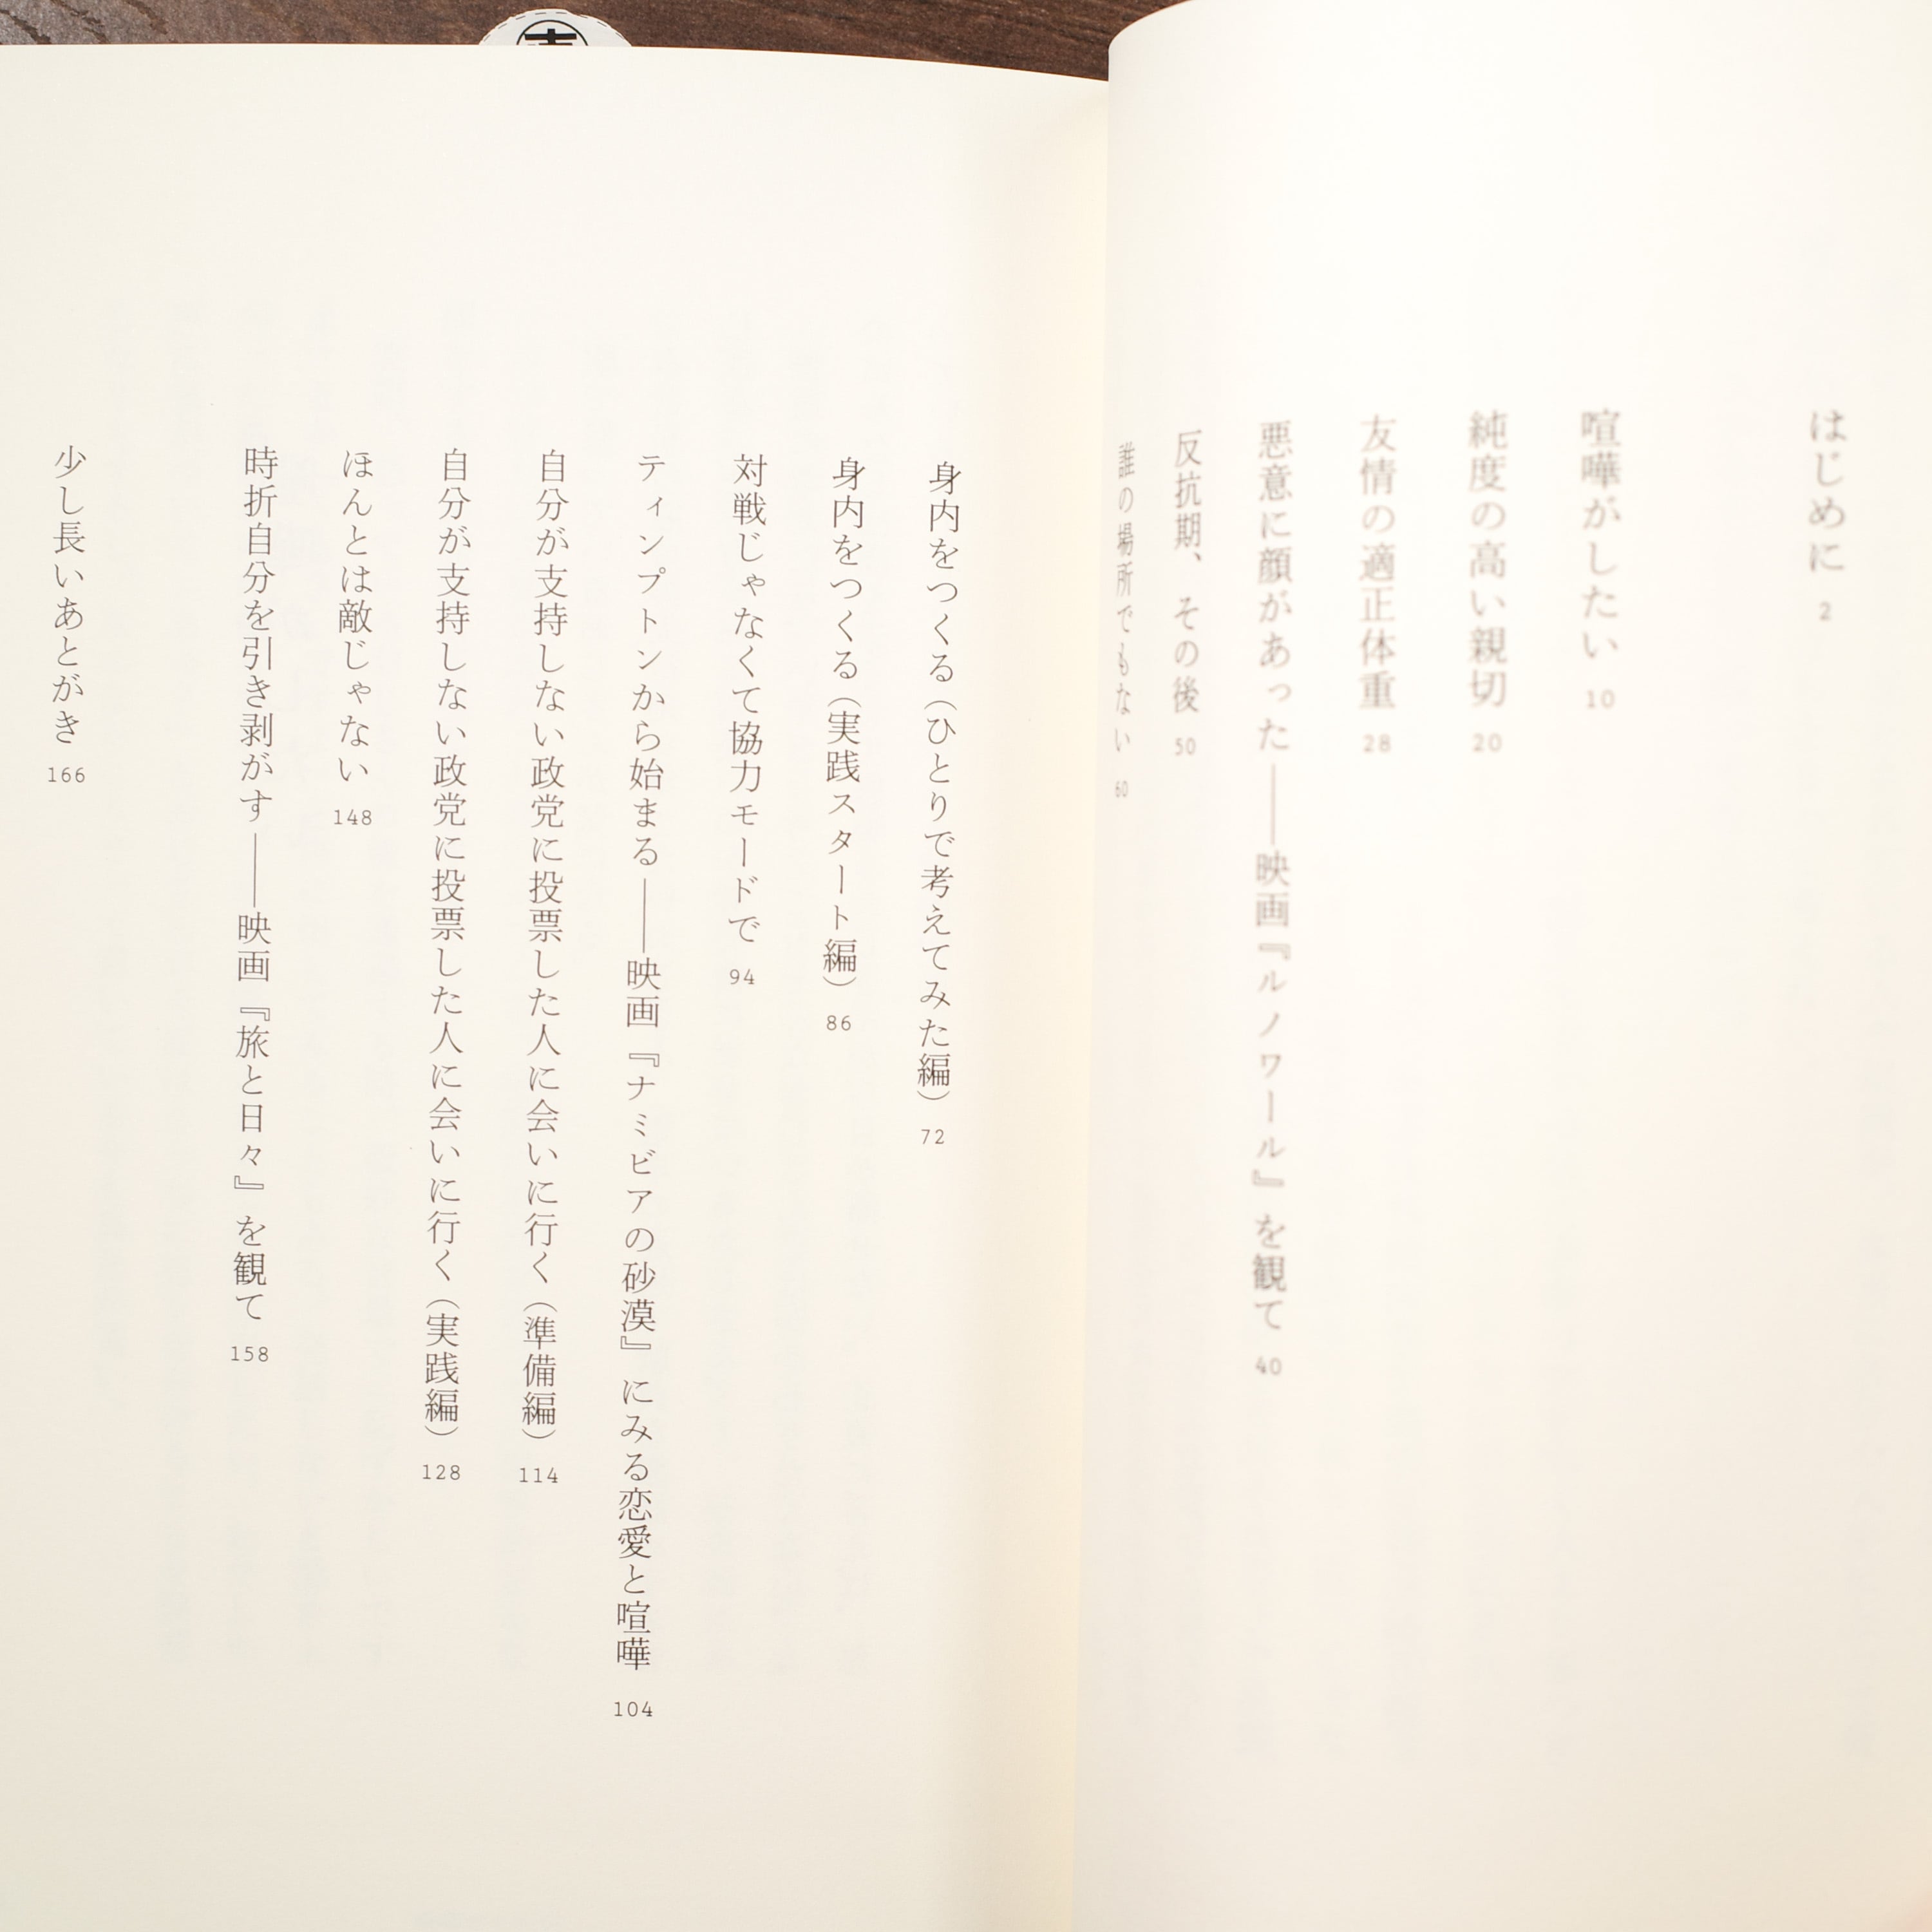 はじめに 2
喧嘩がしたい 10
純度の高い親切 20
友情の適正体重 28
悪意に顔があった――映画『ルノワール』を観て 40
反抗期、その後 50
誰の場所でもない 60
身内をつくる（ひとりで考えてみた編） 72
身内をつくる（実践スタート編） 86
対戦じゃなくて協力モードで 94
ティンプトンから始まる――映画『ナミビアの砂漠』にみる恋愛と喧嘩 104
自分が支持しない政党に投票した人に会いに行く（準備編） 114
自分が支持しない政党に投票した人に会いに行く（実践編） 128
ほんとは敵じゃない 148
時折自分を引き剥がす――映画『旅と日々』を観て 158
少し長いあとがき 166